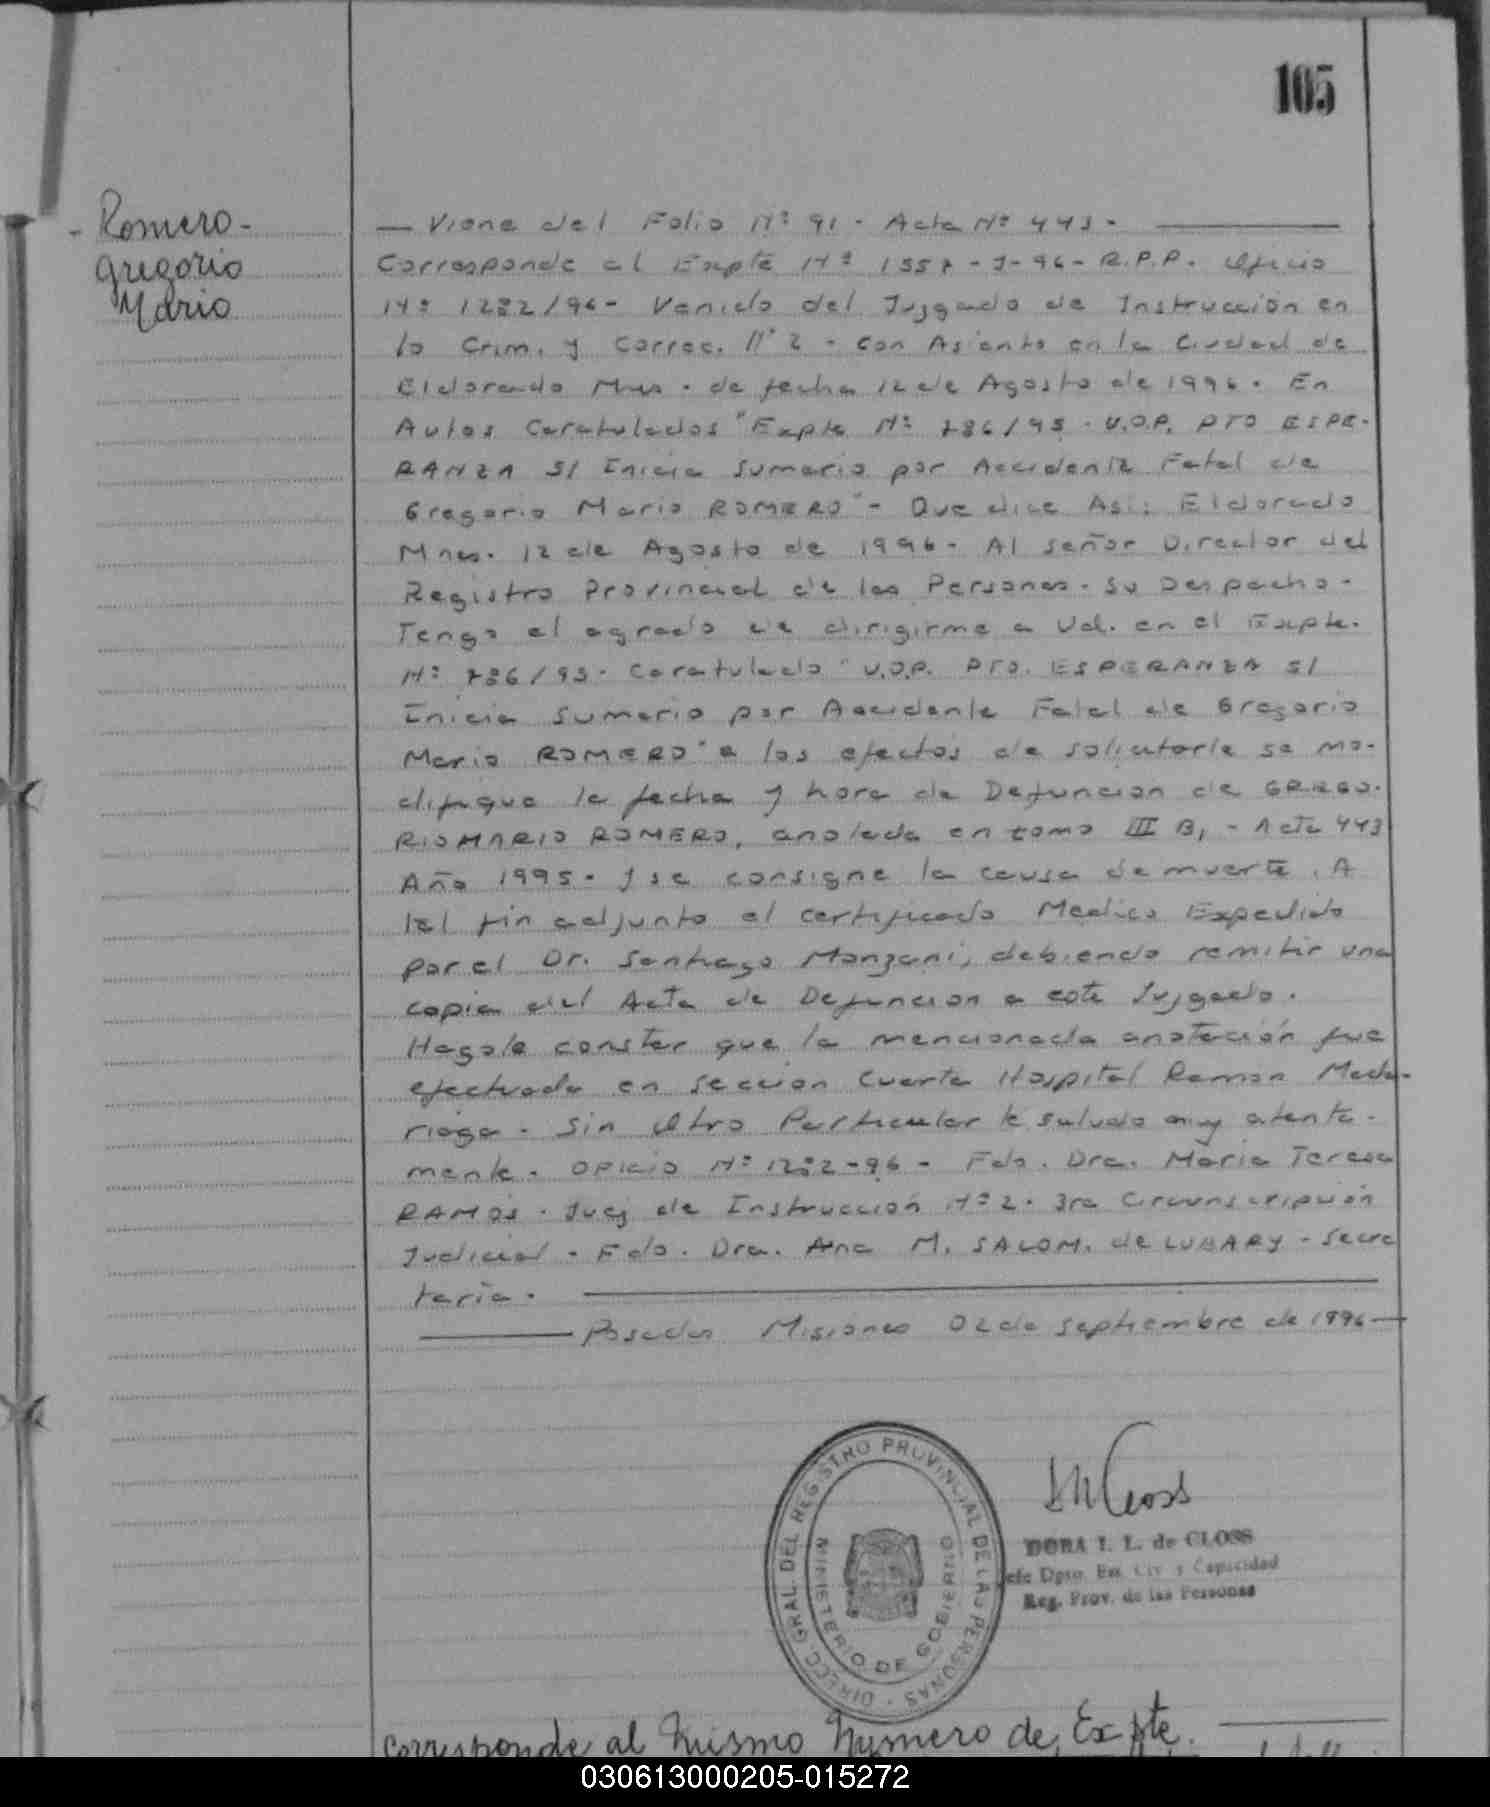 105
- Romero -
Gregorio
Mario
— Viene del Folio Nº 91 - Acta Nº 443 -
Corresponde al Expte Nº 1557 - J - 96 - R.P.P. Oficio
Nº 1282/96 - Venido del Juzgado de Instrucción en
lo Crim. y Correc. Nº 2 - Con Asiento en la Ciudad de
Eldorado Mnes. de fecha 12 de Agosto de 1996. En
Autos Caratulados "Expte Nº 786/95 - U.O.P. PTO ESPE-
RANZA S/ Inicia Sumario por Accidente Fatal de
Gregorio Mario ROMERO" - Que dice Asi: Eldorado
Mnes. 12 de Agosto de 1996 - Al señor Director del
Registro Provincial de las Personas - Su Despacho -
Tengo el agrado de dirigirme a Ud. en el Expte.
Nº 786/95 - Caratulado "U.O.P. PTO. ESPERANZA S/
Inicia Sumario por Accidente Fatal de Gregorio
Mario ROMERO" a los efectos de solicitarle se mo-
difique la fecha y hora de Defuncion de GREGO-
RIO MARIO ROMERO, anotada en tomo III B, - Acta 443
Año 1995 - y se consigne la causa de muerte. A
tal fin adjunto el certificado Medico Expedido
por el Dr. Santiago Manzani, debiendo remitir una
copia del Acta de Defuncion a este Juzgado.
Hagole constar que la mencionada anotación fue
efectuada en Seccion Cuarta Hospital Ramon Mada-
riaga - Sin Otro Particular le saludo muy atenta-
mente. OFICIO Nº 1282-96 - Fdo. Dra. Maria Teresa
RAMOS - Juez de Instrucción Nº 2 - 3ra Circunscripción
Judicial - Fdo. Dra. Ana M. SALOM. de LUBARY - Secre
taria.
Posadas Misiones 02 de septiembre de 1996 —
DIRECC. GRAL. DEL REGISTRO PROVINCIAL DE LAS PERSONAS
MINISTERIO DE GOBIERNO
DORA I. L. de CLOSS
Jefe Dpto. Est. Civ. y Capacidad
Reg. Prov. de las Personas
Corresponde al Mismo Numero de Expte.
030613000205-015272